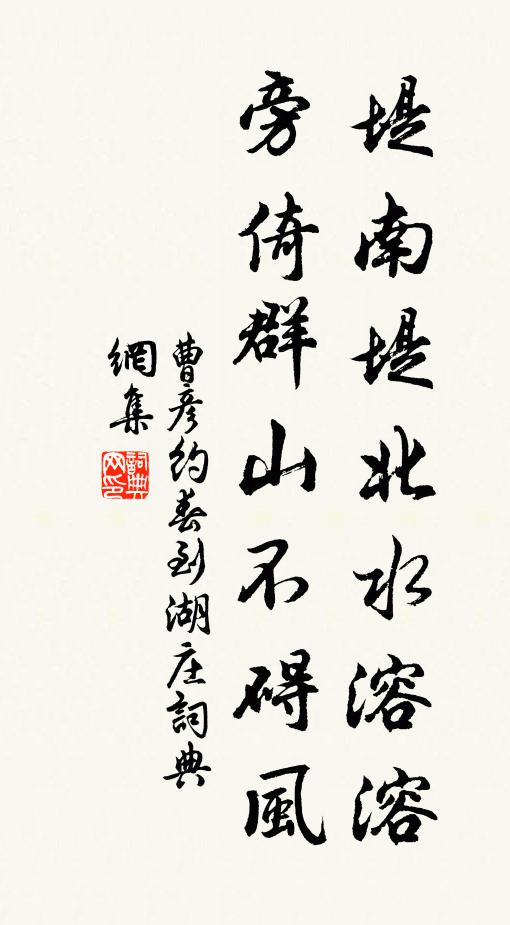 堤南堤北水溶溶
旁倚群山不碍風
曹彦約春到湖庄詞典
網集
詞典
网印